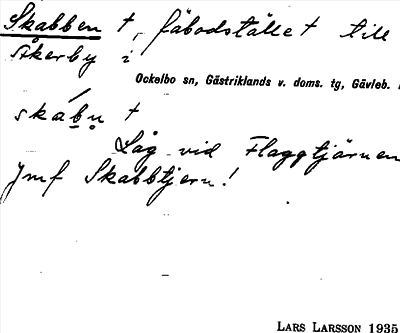 Skabben †, fäbodstället till
Åkerby i
Ockelbo sn, Gästriklands v. doms. tg, Gävleb.
skábu̥ †
Låg vid Flaggtjärnen
Jmf Skabbtjern!
LARS LARSSON 1935